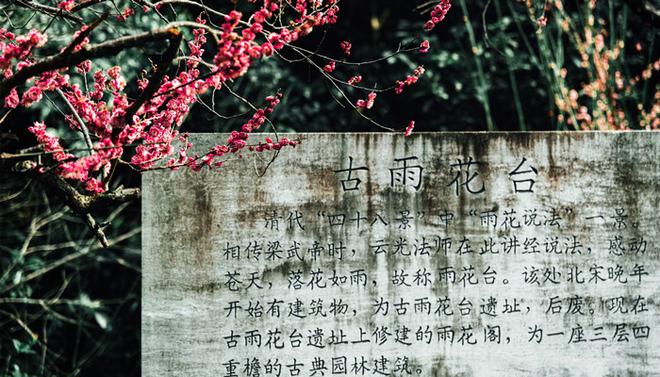 古雨花台
清代“四十八景”中“雨花说法”一景。
相传梁武帝时，云光法师在此讲经说法，感动
苍天，落花如雨，故称雨花台。该处北宋晚年
开始有建筑物，为古雨花台遗址，后废。现在
古雨花台遗址上修建的雨花阁，为一座三层四
重檐的古典园林建筑。